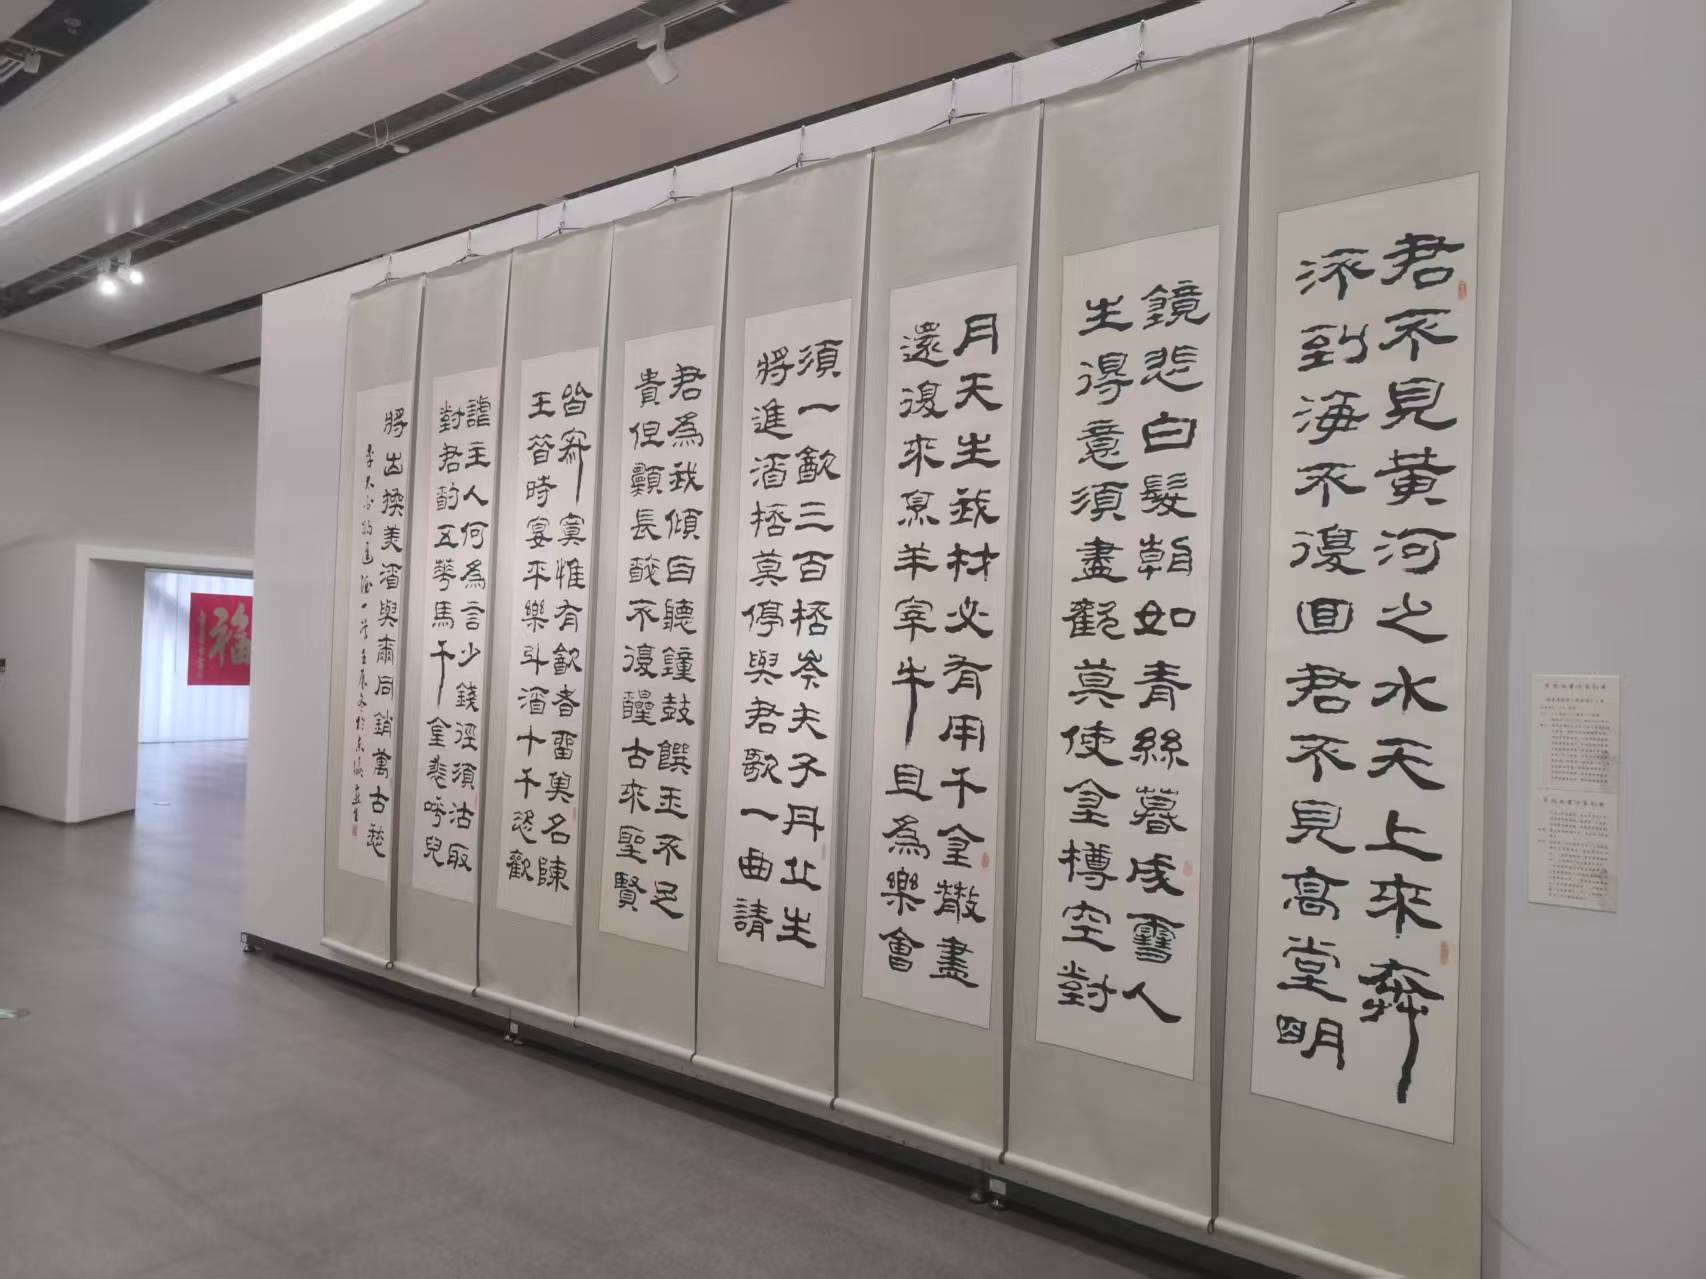 君不見黃河之水天上來奔
流到海不復回君不見高堂明
鏡悲白髮朝如青絲暮成雪人
生得意須盡歡莫使金樽空對
月天生我材必有用千金散盡
還復來烹羊宰牛且為樂會
須一飲三百桮岑夫子丹丘生
將進酒桮莫停與君歌一曲請
君為我傾耳聽鐘鼓饌玉不足
貴但願長醉不復醒古來聖賢
皆寂寞惟有飲者留其名陳
王昔時宴平樂斗酒十千恣歡
謔主人何為言少錢徑須沽取
對君酌五華馬千金裘呼兒
將出換美酒與爾同銷萬古愁
李太白將進酒一首
福